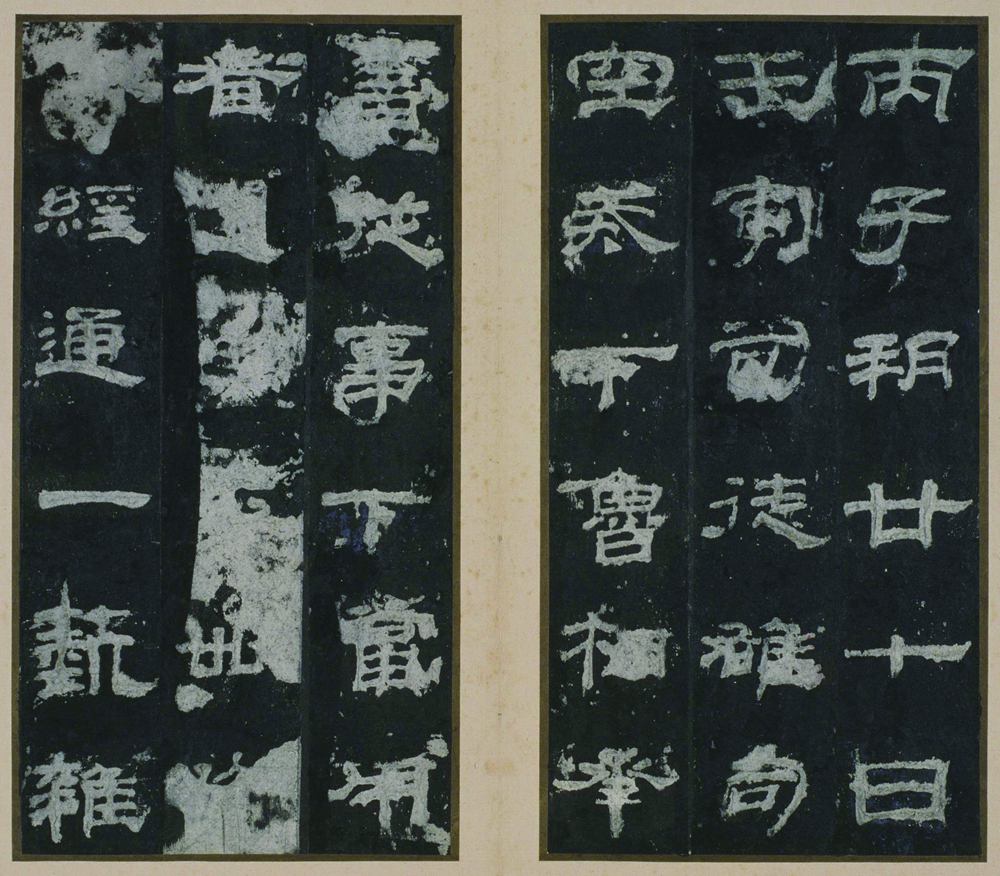 丙子朔廿七日
壬寅司徒雄司
空戒下魯相承
書從事下當用
者卌
經通一藝雜